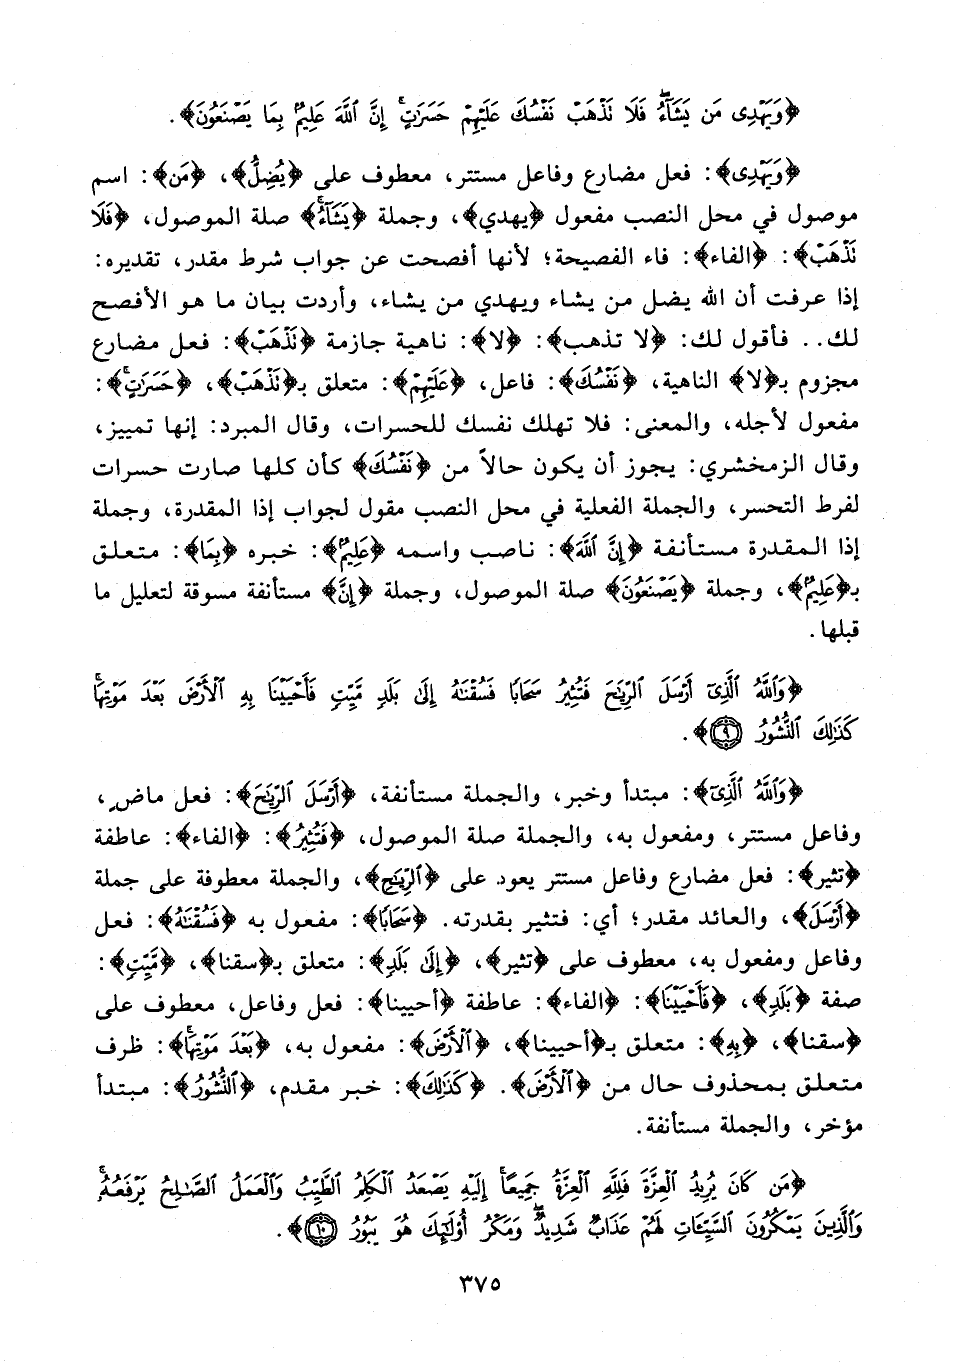 ﴿وَيَهْدِى مَن يَشَآءُ ۖ فَلَا تَذْهَبْ نَفْسُكَ عَلَيْهِمْ حَسَرَٰتٍ ۚ إِنَّ ٱللَّهَ عَلِيمٌۢ بِمَا يَصْنَعُونَ﴾.
﴿وَيَهْدِى﴾: فعل مضارع وفاعل مستتر، معطوف على ﴿يُضِلُّ﴾، ﴿مَن﴾: اسم
موصول في محل النصب مفعول ﴿يهدي﴾، وجملة ﴿يَشَآءُ ۚ﴾ صلة الموصول، ﴿فَلَا
تَذْهَبْ﴾: ﴿الفاء﴾: فاء الفصيحة؛ لأنها أفصحت عن جواب شرط مقدر، تقديره:
إذا عرفت أن الله يضل من يشاء ويهدي من يشاء، وأردت بيان ما هو الأفصح
لك.. فأقول لك: ﴿لا تذهب﴾: ﴿لا﴾: ناهية جازمة ﴿نَذْهَبْ﴾: فعل مضارع
مجزوم بـ﴿لا﴾ الناهية، ﴿نَفْسُكَ﴾: فاعل، ﴿عَلَيْهِمْ﴾: متعلق بـ﴿نَذْهَبْ﴾، ﴿حَسَرَٰتٍ ۚ﴾:
مفعول لأجله، والمعنى: فلا تهلك نفسك للحسرات، وقال المبرد: إنها تمييز،
وقال الزمخشري: يجوز أن يكون حالاً من ﴿نَفْسُكَ﴾ كأن كلها صارت حسرات
لفرط التحسر، والجملة الفعلية في محل النصب مقول لجواب إذا المقدرة، وجملة
إذا المقدرة مستأنفة ﴿إِنَّ ٱللَّهَ﴾: ناصب واسمه ﴿عَلِيمٌۢ﴾: خبره ﴿بِمَا﴾: متعلق
بـ﴿عَلِيمٌۢ﴾، وجملة ﴿يَصْنَعُونَ﴾ صلة الموصول، وجملة ﴿إِنَّ﴾ مستأنفة مسوقة لتعليل ما
قبلها.
﴿وَٱللَّهُ ٱلَّذِىٓ أَرْسَلَ ٱلرِّيَٰحَ فَتُثِيرُ سَحَابًا فَسُقْنَٰهُ إِلَىٰ بَلَدٍ مَّيِّتٍ فَأَحْيَيْنَا بِهِ ٱلْأَرْضَ بَعْدَ مَوْتِهَا ۚ
كَذَٰلِكَ ٱلنُّشُورُ ٩﴾.
﴿وَٱللَّهُ ٱلَّذِىٓ﴾: مبتدأ وخبر، والجملة مستأنفة، ﴿أَرْسَلَ ٱلرِّيَٰحَ﴾: فعل ماض،
وفاعل مستتر، ومفعول به، والجملة صلة الموصول، ﴿فَتُثِيرُ﴾: ﴿الفاء﴾: عاطفة
﴿تثير﴾: فعل مضارع وفاعل مستتر يعود على ﴿ٱلرِّيَٰحِ﴾، والجملة معطوفة على جملة
﴿أَرْسَلَ﴾، والعائد مقدر؛ أي: فتثير بقدرته. ﴿سَحَابًا﴾: مفعول به ﴿فَسُقْنَٰهُ﴾: فعل
وفاعل ومفعول به، معطوف على ﴿تثير﴾، ﴿إِلَىٰ بَلَدٍ﴾: متعلق بـ﴿سقنا﴾، ﴿مَّيِّتٍ﴾:
صفة ﴿بَلَدٍ﴾، ﴿فَأَحْيَيْنَا﴾: ﴿الفاء﴾: عاطفة ﴿أحيينا﴾: فعل وفاعل، معطوف على
﴿سقنا﴾، ﴿بِهِ﴾: متعلق بـ﴿أحيينا﴾، ﴿ٱلْأَرْضَ﴾: مفعول به، ﴿بَعْدَ مَوْتِهَا ۚ﴾: ظرف
متعلق بمحذوف حال من ﴿ٱلْأَرْضَ﴾. ﴿كَذَٰلِكَ﴾: خبر مقدم، ﴿ٱلنُّشُورُ﴾: مبتدأ
مؤخر، والجملة مستأنفة.
﴿مَن كَانَ يُرِيدُ ٱلْعِزَّةَ فَلِلَّهِ ٱلْعِزَّةُ جَمِيعًا ۚ إِلَيْهِ يَصْعَدُ ٱلْكَلِمُ ٱلطَّيِّبُ وَٱلْعَمَلُ ٱلصَّٰلِحُ يَرْفَعُهُۥ ۚ
وَٱلَّذِينَ يَمْكُرُونَ ٱلسَّيِّـَٔاتِ لَهُمْ عَذَابٌ شَدِيدٌ ۖ وَمَكْرُ أُو۟لَٰٓئِكَ هُوَ يَبُورُ ١٠﴾.
٣٧٥